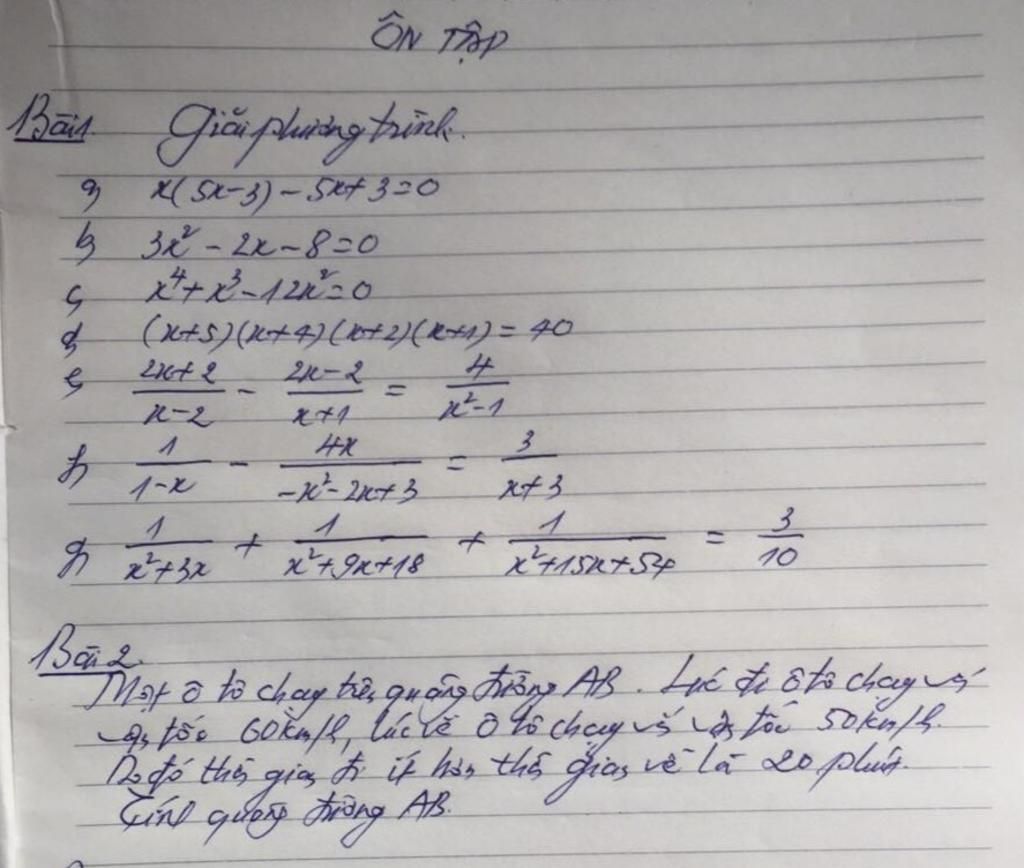 ÔN TẬP
Bài 1. Giải phương trình.
a, x(5x-3) - 5x+3=0
b, 3x² - 2x - 8 = 0
c, x⁴ + x³ - 12x² = 0
d, (x+5)(x+4)(x+2)(x+1) = 40
e, (2x+2)/(x-2) - (2x-2)/(x+1) = 4/(x²-1)
f, 1/(1-x) - 4x/(-x²-2x+3) = 3/(x+3)
g, 1/(x²+3x) + 1/(x²+9x+18) + 1/(x²+15x+54) = 3/10
Bài 2
Một ô tô chạy trên quãng đường AB. Lúc đi ô tô chạy với
vận tốc 60km/h, lúc về ô tô chạy với vận tốc 50km/h.
Do đó thời gian đi ít hơn thời gian về là 20 phút.
Tính quãng đường AB.